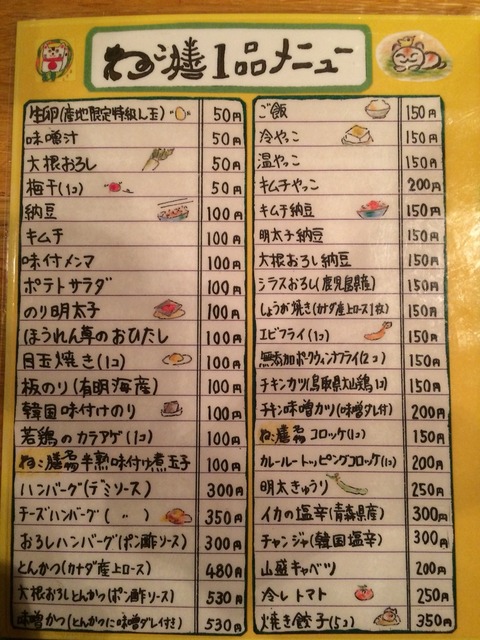 ねこ膳1品メニュー
生卵(産地限定特級L玉) 50円
味噌汁 50円
大根おろし 50円
梅干(1コ) 50円
納豆 100円
キムチ 100円
味付メンマ 100円
ポテトサラダ 100円
のり明太子 100円
ほうれん草のおひたし 100円
目玉焼き(1コ) 100円
板のり(有明海産) 100円
韓国味付けのり 100円
若鶏のカラアゲ(1コ) 100円
ねこ膳名物半熟味付け煮玉子 100円
ハンバーグ(デミソース) 300円
チーズハンバーグ( 〃 ) 350円
おろしハンバーグ(ポン酢ソース) 300円
とんかつ(カナダ産上ロース) 480円
大根おろしとんかつ(ポン酢ソース) 530円
味噌かつ(とんかつに味噌ダレ付き) 530円
ご飯 150円
冷やっこ 150円
温やっこ 150円
キムチやっこ 200円
キムチ納豆 150円
明太子納豆 150円
大根おろし納豆 150円
シラスおろし(鹿児島県産) 150円
しょうが焼き(カナダ産上ロース1枚) 150円
エビフライ(1コ) 150円
無添加ポークウィンナフライ(2コ) 150円
チキンカツ(鳥取県大山鶏1コ) 150円
チキン味噌カツ(味噌ダレ付) 200円
ねこ膳名物コロッケ(1コ) 150円
カレールートッピングコロッケ(1コ) 200円
明太きゅうり 250円
イカの塩辛(青森県産) 300円
チャンジャ(韓国塩辛) 300円
山盛キャベツ 200円
冷しトマト 250円
焼き餃子(5コ) 350円